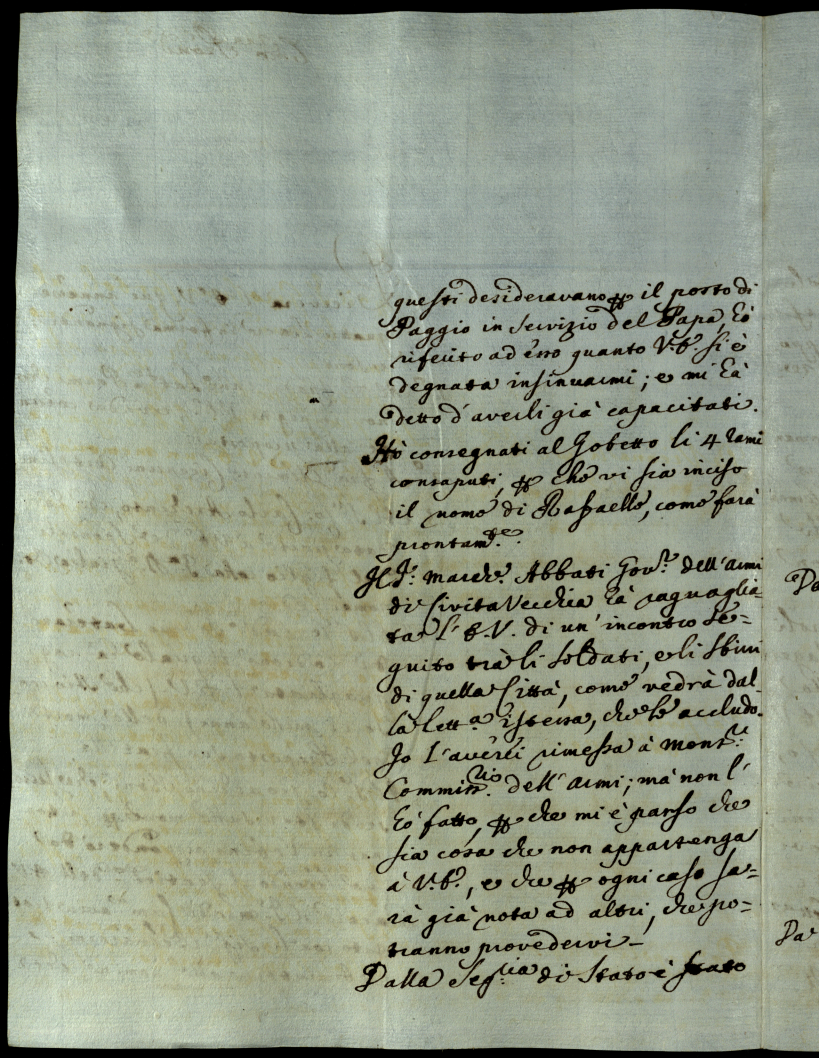 questi desideravano p il posto di
Paggio in servizio del Papa, hò
riferito ad esso quanto V. E. si è
degnata insinuarmi; e mi hà
detto d'averli già capacitati.
Hò consegnati al Gobetto li 4 rami
consaputi, p che vi sia inciso
il nome di Raffaelle, come farà
prontam.te
Il S.r March.e Abbati Gov.re dell'armi
di Civita Vecchia hà raguaglia-
ta l'E. V. di un'incontro se=
guito trà li soldati, e li sbirri
di quella Città, come vedrà dal-
la lett.a istessa, che le accludo.
Io l'averei rimessa à Mons.r
Commiss.rio dell'armi; mà non l'
hò fatto, p che mi è parso che
sia cosa che non appartenga
à V. E., e che p ogni caso sa=
rà già nota ad altri, che po=
tranno provedervi -
Dalla Seg.ria di Stato è stato
Da